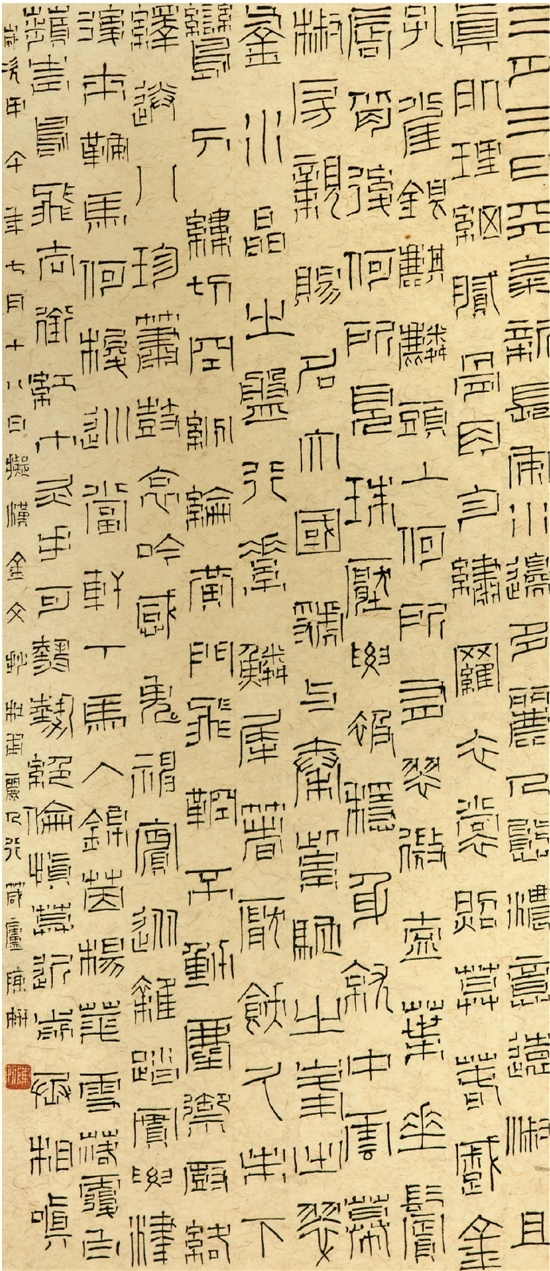 三月三日天氣新長安水邊多麗人態濃意遠淑且
真肌理細膩骨肉勻繡羅衣裳照暮春蹙金
孔雀銀麒麟頭上何所有翠微㔩葉垂鬢
脣背後何所見珠壓腰衱穩身就中雲幕
椒房親賜名大國虢與秦紫駝之峯出翠
釜水晶之盤行素鱗犀箸厭飫久未下
鸞刀縷切空紛綸黃門飛鞚不動塵御廚絡
繹送八珍簫鼓哀吟感鬼神賓從雜遝實要津
後來鞍馬何逡巡當軒下馬入錦茵楊花雪落覆白
蘋青鳥飛去銜紅巾炙手可熱勢絕倫慎莫近前丞相嗔
歲次甲午年七月十八日擬漢金文抄杜甫麗人行